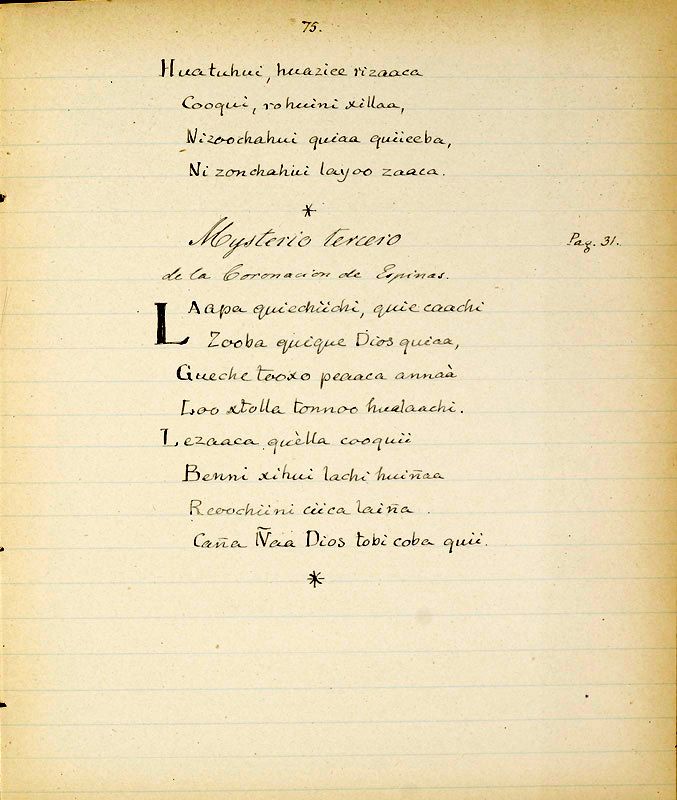 75.
Huatuhui, huazice rizaaca
Cooqui, rohuini xillaa,
Nizoochahui quiaa quiieeba,
Ni zonchahui layoo zaaca.
*
Mysterio tercero
Pag. 31.
de la Coronacion de Espinas.
LAapa quiechiichi, quie caachi
Zooba quique Dios quiaa,
Gueche tooxo peaaca annaà
Loo xtolla tonnoo hualaachi.
Lezaaca quèlla cooquii
Benni xihui lachi huiñaa
Recochiini ciica laiña
Caña Ñaa Dios tobi coba quii.
*